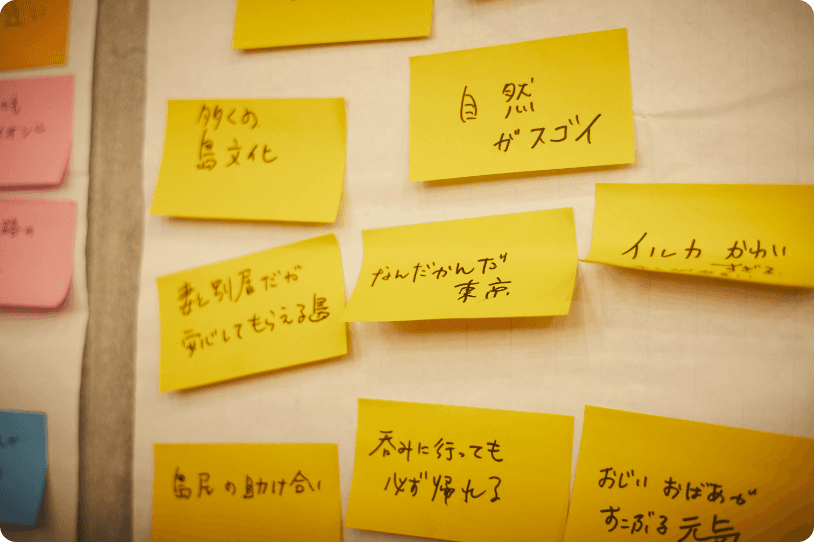 多くの
島文化
自然
ガスゴイ
妻と別居だが
安心してもらえる島
なんだかんだ
東京
イルカ かわい
すぎる
島民の助け合い
呑みに行っても
必ず帰れる
おじい おばあが
すこぶる元気